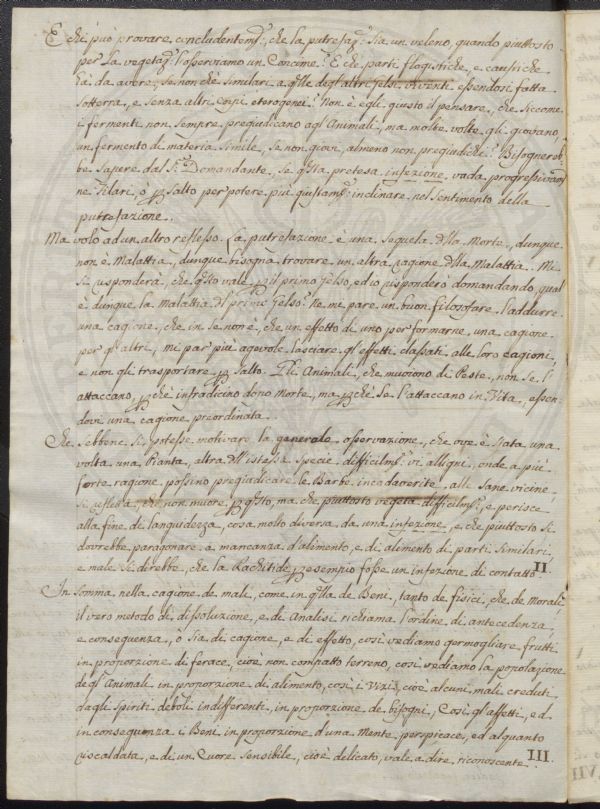 E chi può provare concludentemte, che la putrefaze sia un veleno, quando piuttosto
per la vegetaze l'osserviamo un Concime? E che parti flogistiche, e caustiche
ha da avere, se non che similari a qlle degl'altri Gelsi viventi essendosi fatta
sotterra, e senza altri corpi eterogenei? Non è egli giusto il pensare, che siccome
i fermenti non sempre pregiudicano agl'Animali, ma molte volte gli giovano,
un fermento di materia simile, se non giovi, almeno non pregiudichi? Bisognereb-
be sapere dal Sr Domandante, se qsta pretesa infezione, vada progressivam
ne' filari, ò per salto per potere più giustamte inclinare nel sentimento della
putrefazione.
Ma volo ad un altro reflesso. La putrefazione è una sequela dlla Morte, dunque
non è Malattia, dunque bisogna trovare un altra cagione dlla Malattia. Mi
si risponderà, che qsto vale per il primo Gelso, ed io rispondero domandando, qual
è dunque la Malattia dl primo Gelso? Ne mi pare un buon filosofare l'addurre
una cagione, che in se non è, che un effetto di uno per formarne una cagione
per gl'altri, mi par più agevole lasciare gl'effetti classati alle loro cagioni,
e non gli trasportare per salto. Gli Animali, che muoiono di Peste, non se l'
attaccano, perchè infradicino dopo Morte, ma perchè se l'attaccano in Vita, essen-
dovi una cagione preordinata.
Che sebbene si potesse motivare la generale osservazione, che ove è stata una
volta una Pianta, altra dll'istessa specie difficilmte vi alligni, onde a più
forte ragione possino pregiudicare le Barbe incadaverite alle sane vicine,
si refletta, che non muore per qsto, ma che piuttosto vegeta difficilmte, e perisce
alla fine di languidezza, cosa molto diversa da una infezione, e che piuttosto si
dovrebbe paragonare a mancanza d'alimento, e di alimento di parti similari,
e male si direbbe, che la Rachitide per esempio fosse un infezione di contatto. II
In somma nella cagione de mali, come in qlla de Beni, tanto de fisici, che de Morali
il vero metodo di dissoluzione, e di Analisi richiama l'ordine di antecedenza,
e conseguenza, o sia di cagione, e di effetto, così vediamo germogliare frutti
in proporzione di ferace, cioè non compatto terreno, così vediamo la popolazione
degl'Animali in proporzione di alimento, così i Vizi, cioè alcuni mali creduti
dagli spiriti deboli indifferenti, in proporzione de bisogni, Così gl'affetti, ed
in conseguenza i Beni in proporzione d'una Mente perspicace, ed alquanto
riscaldata, e di un Cuore sensibile, cioè delicato, vale a dire, riconoscente. III